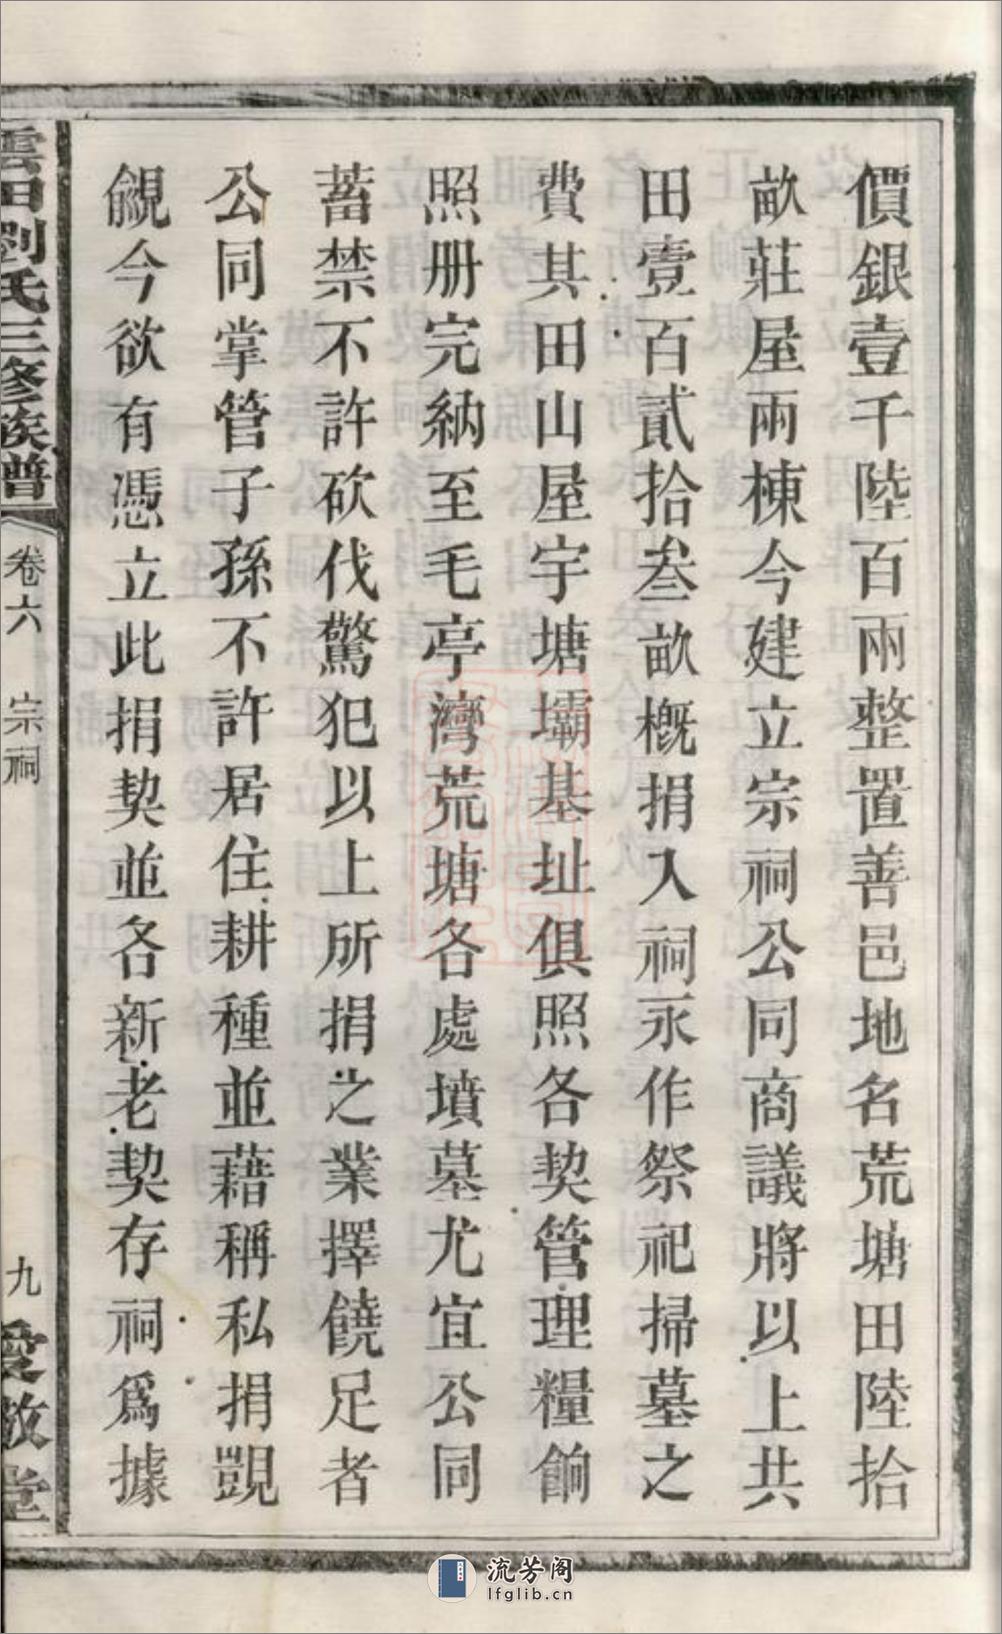 價銀壹千陸百兩整置善邑地名荒塘田陸拾
畝莊屋兩棟今建立宗祠公同商議將以上共
田壹百貳拾叁畝概捐入祠永作祭祀掃墓之
費其田山屋宇塘壩基址俱照各契管理糧餉
照册完納至毛亭灣荒塘各處墳墓尤宜公同
蓄禁不許砍伐驚犯以上所捐之業擇饒足者
公同掌管子孫不許居住耕種並藉稱私捐覬
覦今欲有憑立此捐契並各新老契存祠爲據
雲田劉氏三修族譜
卷六 宗祠
九
愛敬堂
流芳阁
lfglib.cn